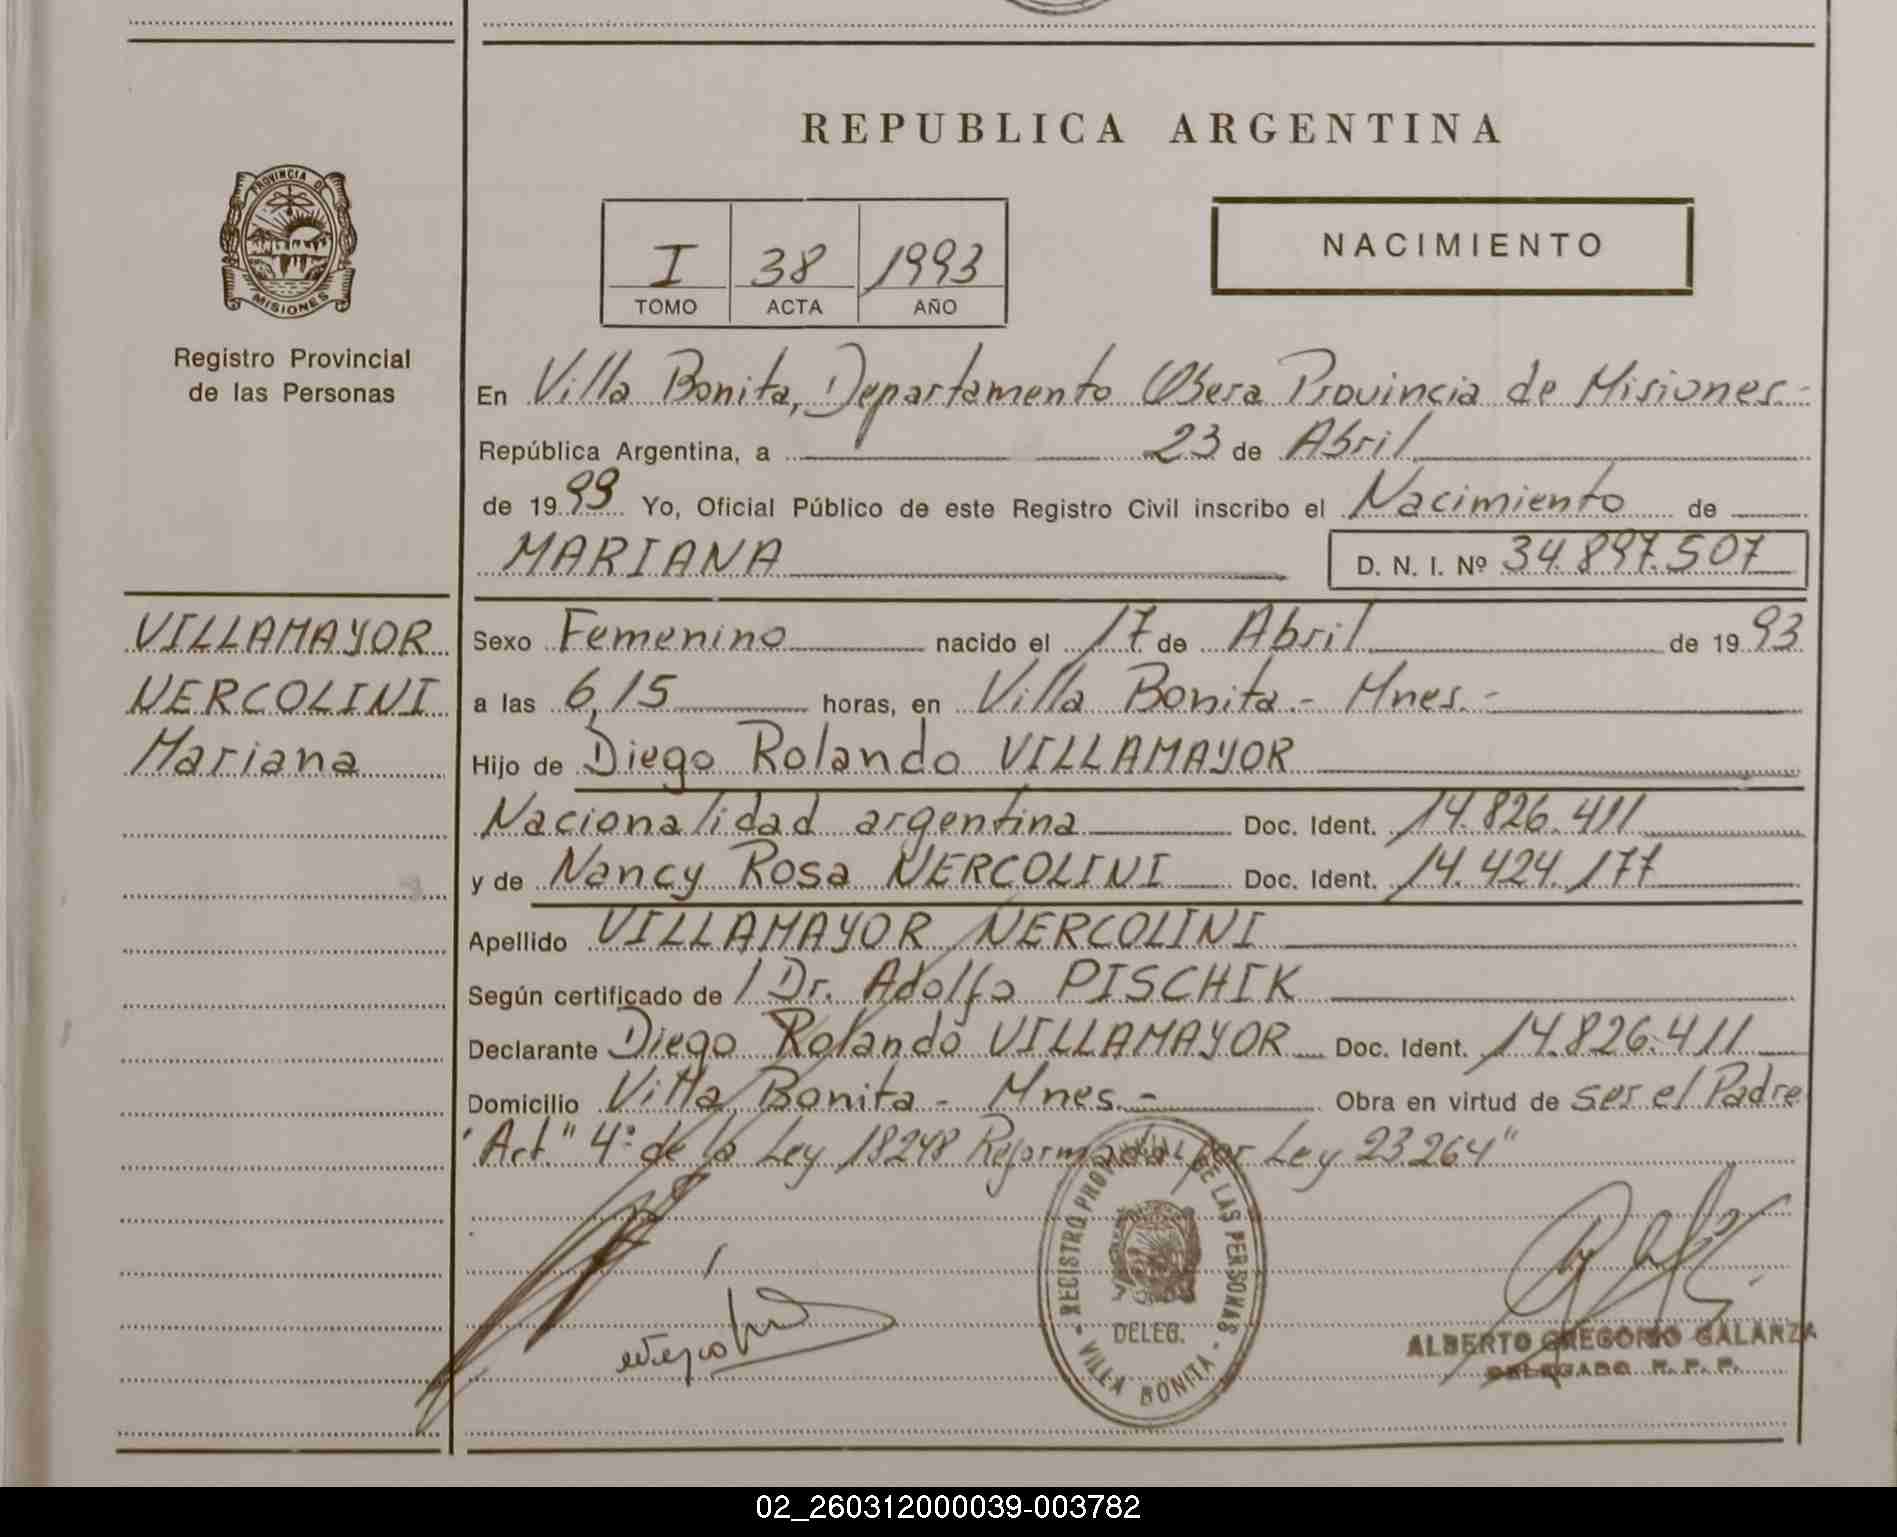 REPUBLICA ARGENTINA
PROVINCIA D
MISIONES
Registro Provincial
de las Personas
I 38 1993
TOMO ACTA AÑO
NACIMIENTO
En Villa Bonita, Departamento Obera Provincia de Misiones.-
República Argentina, a 23 de Abril
de 19 93 Yo, Oficial Público de este Registro Civil inscribo el Nacimiento de
MARIANA D. N. I. Nº 34.897.507
VILLAMAYOR
NERCOLINI
Mariana
Sexo Femenino nacido el 17 de Abril de 19 93
a las 6,15 horas, en Villa Bonita.- Mnes.-
Hijo de Diego Rolando VILLAMAYOR
Nacionalidad argentina Doc. Ident. 14.826.411
y de Nancy Rosa NERCOLINI Doc. Ident. 14.424.177
Apellido VILLAMAYOR NERCOLINI
Según certificado de / Dr. Adolfo PISCHIK
Declarante Diego Rolando VILLAMAYOR Doc. Ident. 14.826.411
Domicilio Villa Bonita - Mnes.- Obra en virtud de ser el Padre
"Art" 4º de la Ley 18248 Reformada por Ley 23264"
REGISTRO PROVINCIAL DE LAS PERSONAS
DELEG.
- VILLA BONITA -
ALBERTO GREGORIO GALARZA
DELEGADO R. P. P.
02_260312000039-003782